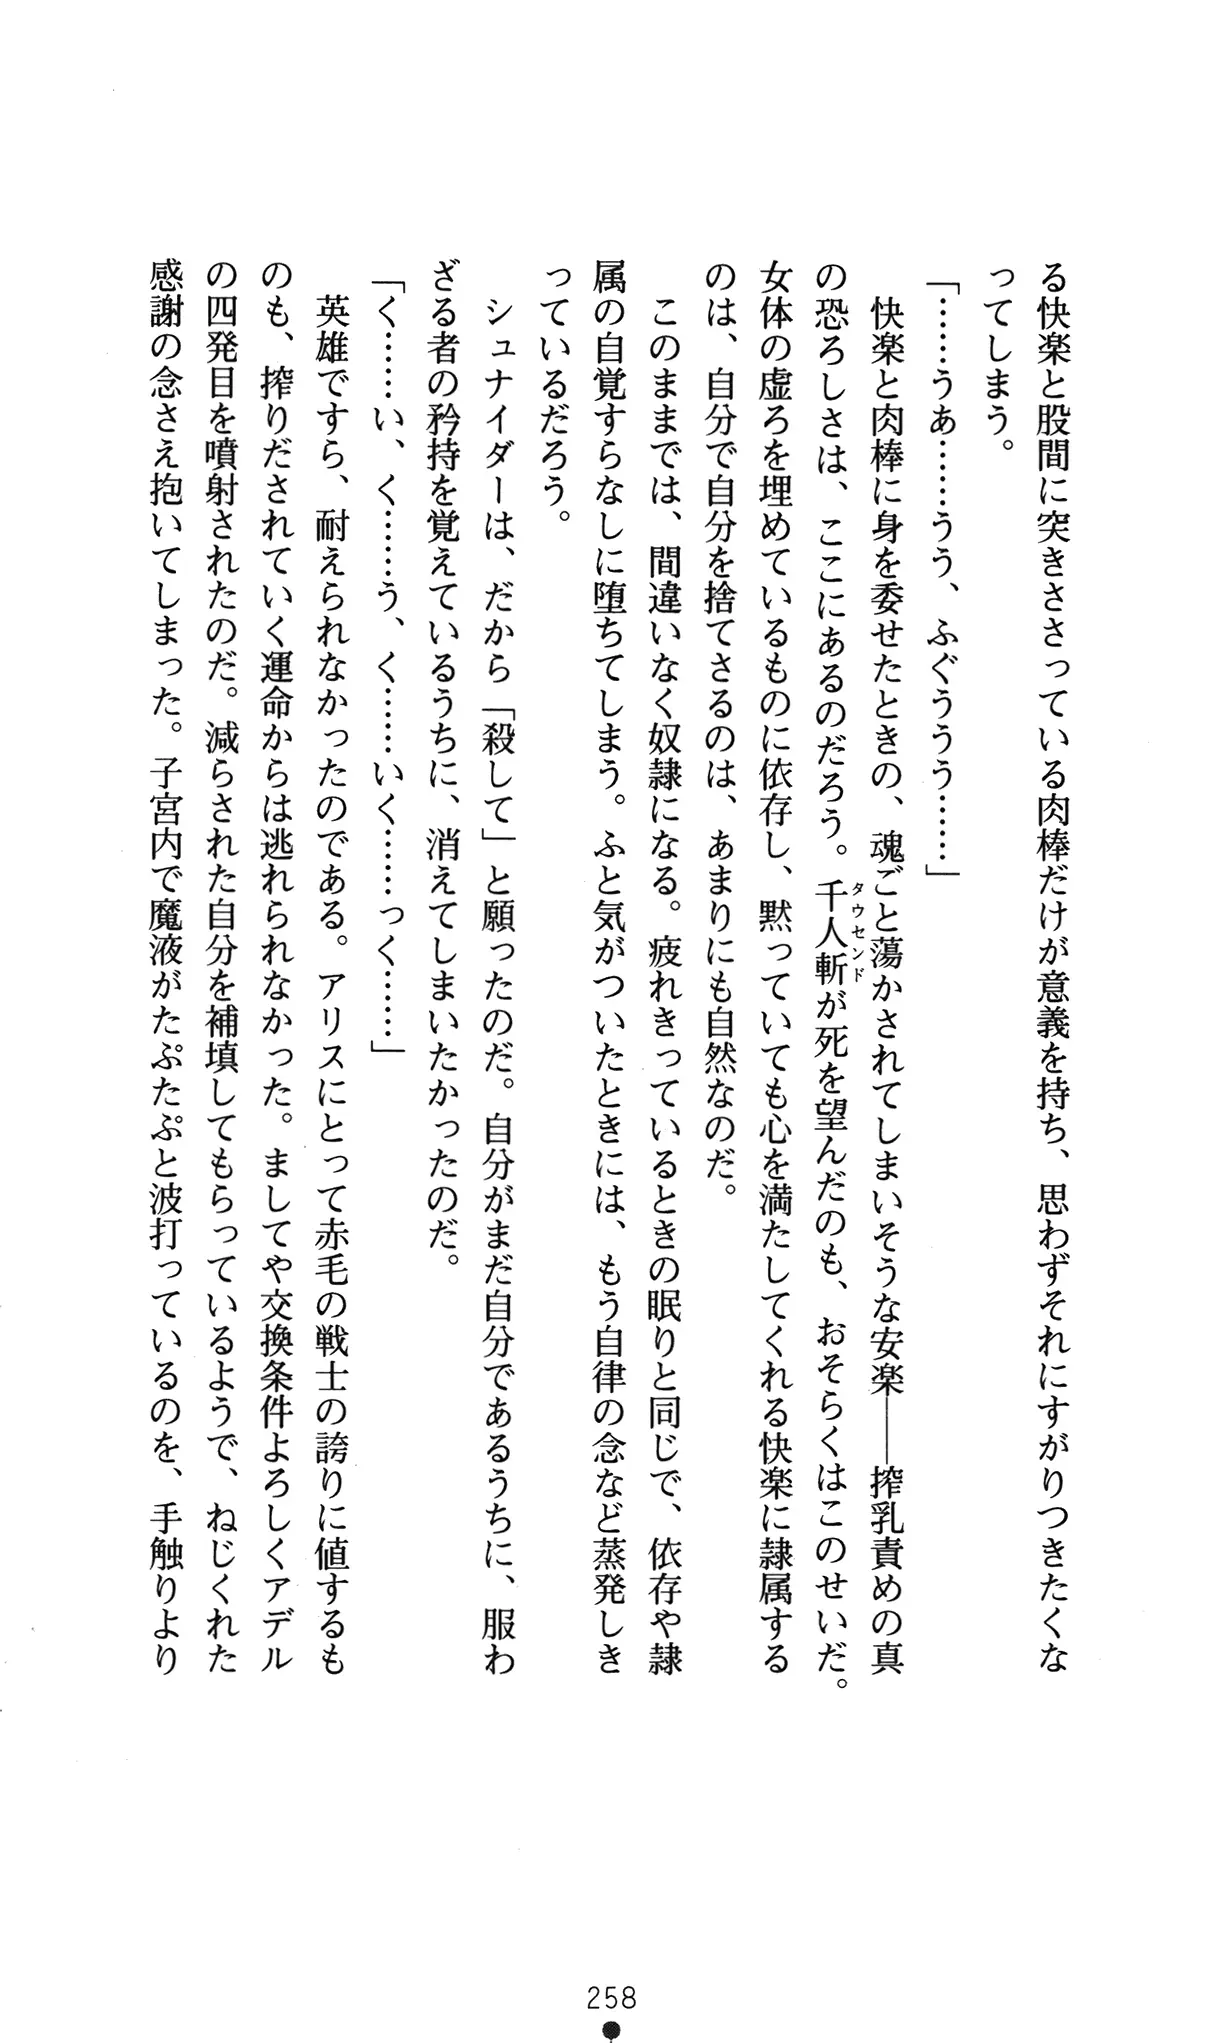 る快楽と股間に突きささっている肉棒だけが意義を持ち、思わずそれにすがりつきたくな
ってしまう。
「……うあ……うう、ふぐううう……」
　快楽と肉棒に身を委せたときの、魂ごと蕩かされてしまいそうな安楽――搾乳責めの真
の恐ろしさは、ここにあるのだろう。千人斬が死を望んだのも、おそらくはこのせいだ。
タウセンド
女体の虚ろを埋めているものに依存し、黙っていても心を満たしてくれる快楽に隷属する
のは、自分で自分を捨てさるのは、あまりにも自然なのだ。
　このままでは、間違いなく奴隷になる。疲れきっているときの眠りと同じで、依存や隷
属の自覚すらなしに堕ちてしまう。ふと気がついたときには、もう自律の念など蒸発しき
っているだろう。
　シュナイダーは、だから「殺して」と願ったのだ。自分がまだ自分であるうちに、服わ
ざる者の矜持を覚えているうちに、消えてしまいたかったのだ。
「く……い、く……う、く……いく……っく……」
　英雄ですら、耐えられなかったのである。アリスにとって赤毛の戦士の誇りに値するも
のも、搾りだされていく運命からは逃れられなかった。ましてや交換条件よろしくアデル
の四発目を噴射されたのだ。減らされた自分を補填してもらっているようで、ねじくれた
感謝の念さえ抱いてしまった。子宮内で魔液がたぷたぷと波打っているのを、手触りより
258